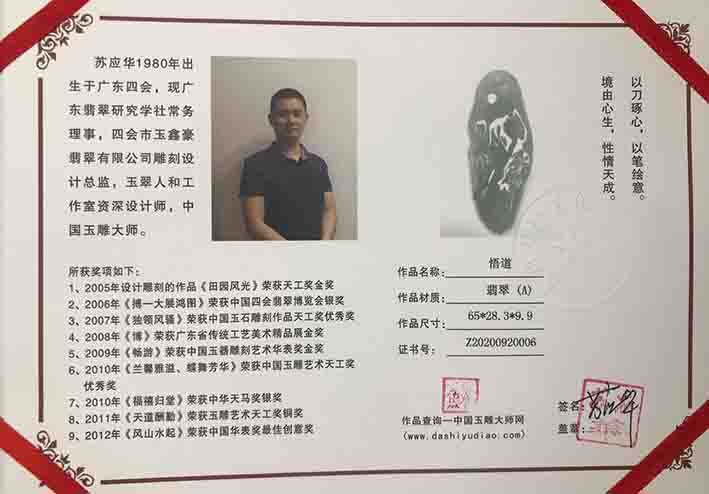 苏应华1980年出
生于广东四会，现广
东翡翠研究学社常务
理事，四会市玉鑫豪
翡翠有限公司雕刻设
计总监，玉翠人和工
作室资深设计师，中
国玉雕大师。
以刀琢心，以笔绘意。
境由心生，性情天成。
所获奖项如下：
1、2005年设计雕刻的作品《田园风光》荣获天工奖金奖
2、2006年《搏一大展鸿图》荣获中国四会翡翠博览会银奖
3、2007年《独领风骚》荣获中国玉石雕刻作品天工奖优秀奖
4、2008年《博》荣获广东省传统工艺美术精品展金奖
5、2009年《畅游》荣获中国玉器雕刻艺术华表奖金奖
6、2010年《兰馨雅溢、蝶舞芳华》荣获中国玉雕艺术天工奖
优秀奖
7、2010年《福禧归堂》荣获中华天马奖银奖
8、2011年《天道酬勤》荣获玉雕艺术天工奖铜奖
9、2012年《风山水起》荣获中国华表奖最佳创意奖
作品名称：悟道
作品材质：翡翠（A）
作品尺寸：65*28.3*9.9
证书号：Z20200920006
作品查询—中国玉雕大师网
(www.dashiyudiao.com)
签名：
盖章：